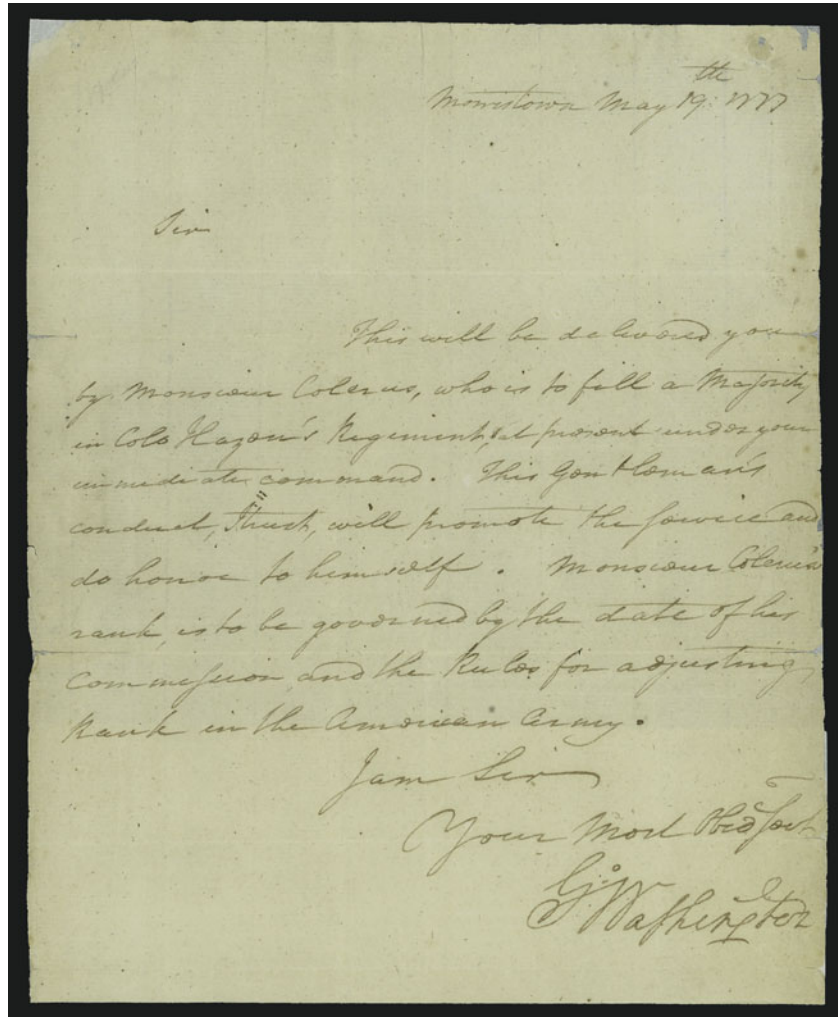 Morristown May 19th: 1777
Sir
This will be delivered you
by Monsieur Colerus, who is to fill a Majority
in Colo Hazen's Regiment, at present under your
immediate command. This Gentleman's
conduct, I trust, will promote the service and
do honor to himself. Monsieur Colerus's
rank, is to be governed by the date of his
Commission and the Rules for adjusting
Rank in the American Army.
I am Sir
Your Most Obed Servt
Go: Washington